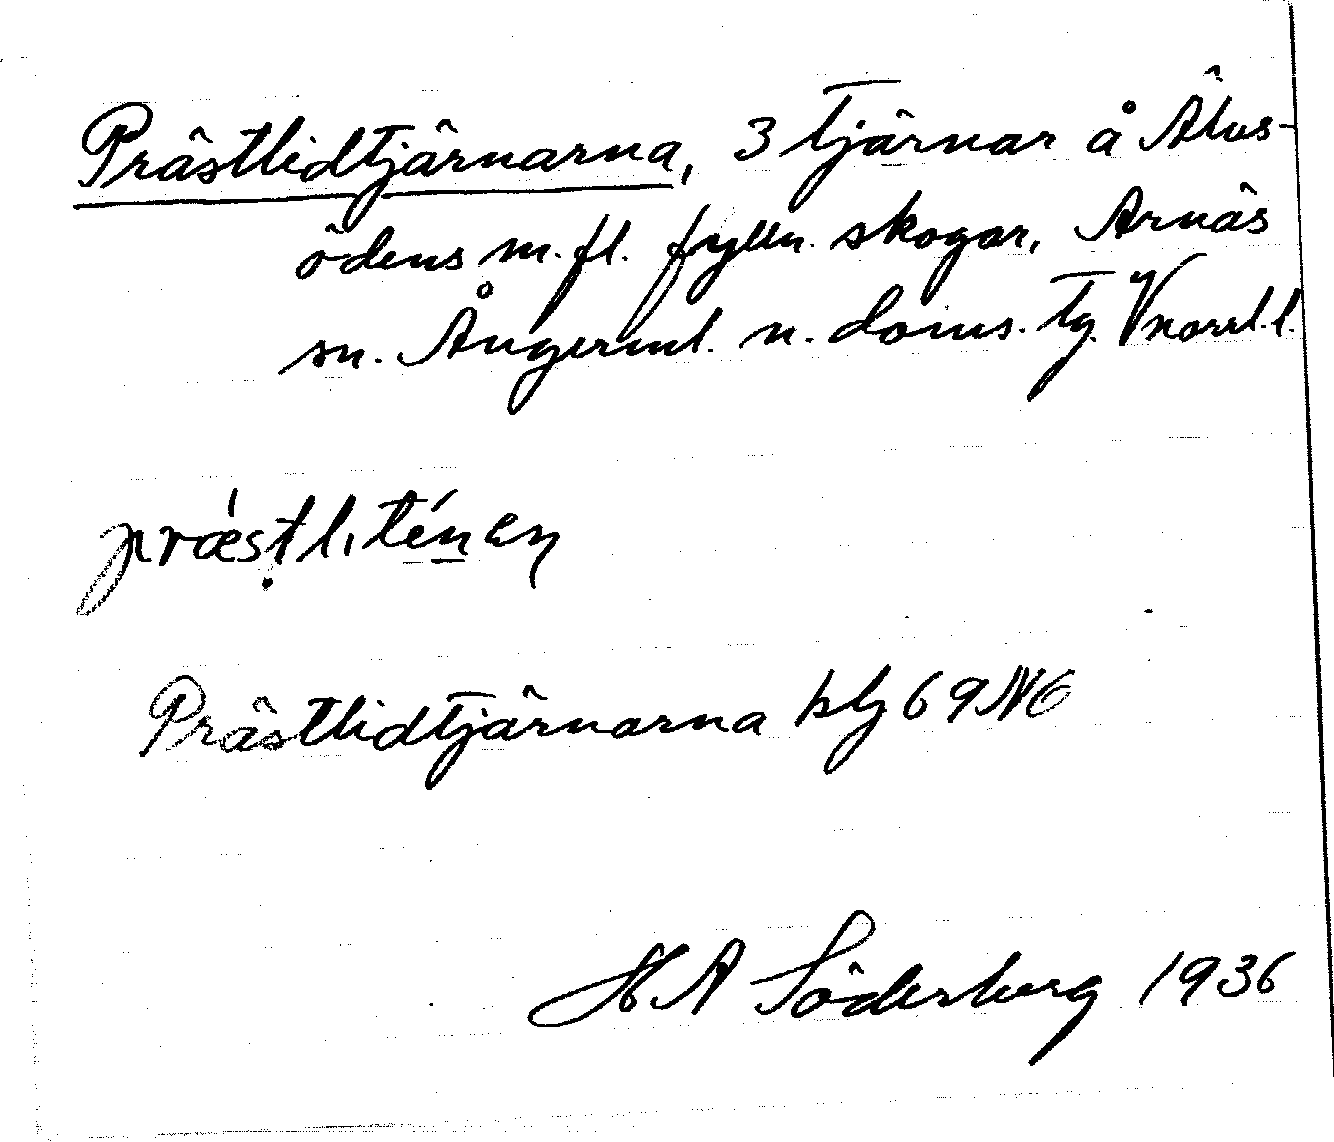 Prästlidtjärnarna, 3 tjärnar å Älvs-
ödens m.fl. fylln. skogar, Arnäs
sn. Ångerml. n. doms. Tg. Vnorrl.l.
præstliténen
Prästlidtjärnarna blz 69 NO
H A Söderberg 1936